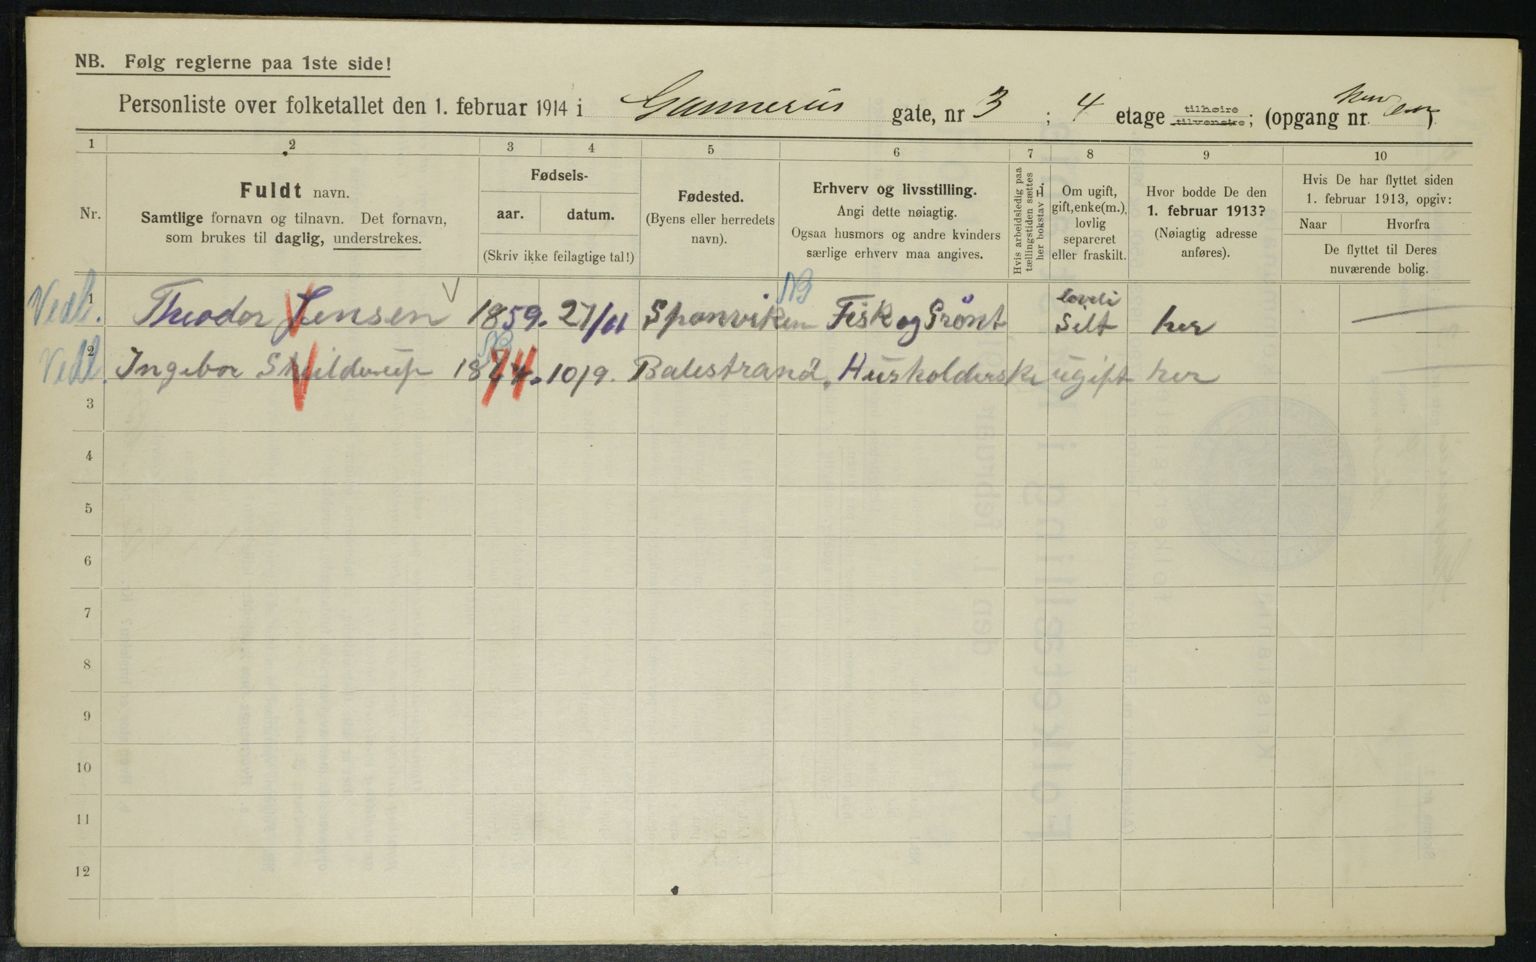 NB. Følg reglerne paa 1ste side!
Personliste over folketallet den 1. februar 1914 i Gunnerus gate, nr 3 ; 4 etage tilhøire tilvenstre; (opgang nr. kun en)
1 2 3 4 5 6 7 8 9 10
Nr.
Fuldt navn.
Samtlige fornavn og tilnavn. Det fornavn,
som brukes til daglig, understrekes.
Fødsels-
aar. datum.
(Skriv ikke feilagtige tal!)
Fødested.
(Byens eller herredets
navn).
Erhverv og livsstilling.
Angi dette nøiagtig.
Ogsaa husmors og andre kvinders
særlige erhverv maa angives.
Hvis arbeidsledig paa
tællingstiden sættes
her bokstav L.
Om ugift,
gift, enke(m.),
lovlig
separeret
eller fraskilt.
Hvor bodde De den
1. februar 1913?
(Nøiagtig adresse
anføres).
Hvis De har flyttet siden
1. februar 1913, opgiv:
Naar Hvorfra
De flyttet til Deres
nuværende bolig.
Vedl. 1 Theodor Jensen 1859. 27/11 Sponviken NB Fisk og Grønt lovli Silt her —
Vedl. 2 Ingebor Schilderup NB 1874. 10/9. Balestrand. Husholderske ugift her
3
4
5
6
7
8
9
10
11
12